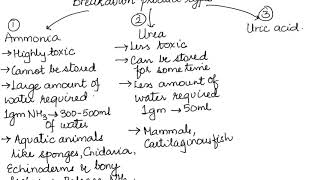 Breakdown product type
① ② ③
Ammonia
→Highly toxic
→Cannot be stored
→Large amount of
water required
1gm NH₃→300-500ml
of water
→Aquatic animals
like sponges, Cnidaria,
Echinoderms & bony
Urea
→Less toxic
→Can be stored
for sometime
→Less amount of
water required
1gm → 50ml
→Mammals,
Cartilagenous fish
Uric acid